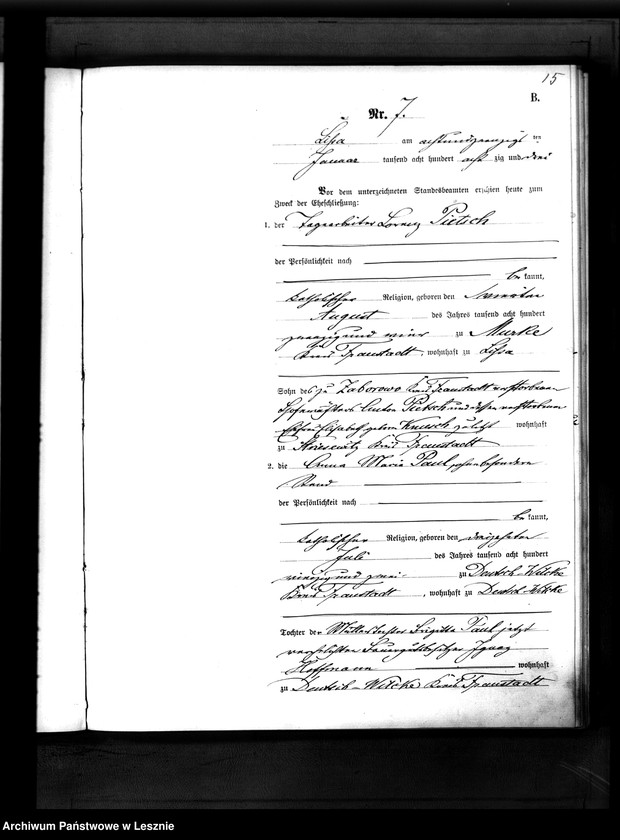 15
B.
Nr. 7.
Lissa am achtundzwanzigs ten
Januar tausend acht hundert acht zig und drei
Vor dem unterzeichneten Standesbeamten erschien heute zum
Zweck der Eheschließung:
1. der Tagearbeiter Lorenz Pietsch
der Persönlichkeit nach
be kannt,
katholischer Religion, geboren den
August des Jahres tausend acht hundert
zwanzig und neun zu Murke
Kreis Fraustadt, wohnhaft zu Lissa
Sohn des zu Zaborowo Kreis Fraustadt verstorbenen
Anton Pietsch und dessen verstorbenen
Ehefrau Elisabeth geborn zuletzt wohnhaft
zu Kreis Fraustadt
2. die Anna Maria Paul, ohne besondern
Stand
der Persönlichkeit nach
be kannt,
katholischer Religion, geboren den dreizehnten
Juli des Jahres tausend acht hundert
vierzig und zwei zu Deutsch-Wilcke
Kreis Fraustadt, wohnhaft zu Deutsch-Wilcke
Tochter der Brigitta Paul jetzt
verehelichten Ignaz
Hoffmann wohnhaft
zu Deutsch-Wilcke Kreis Fraustadt
Archiwum Państwowe w Lesznie